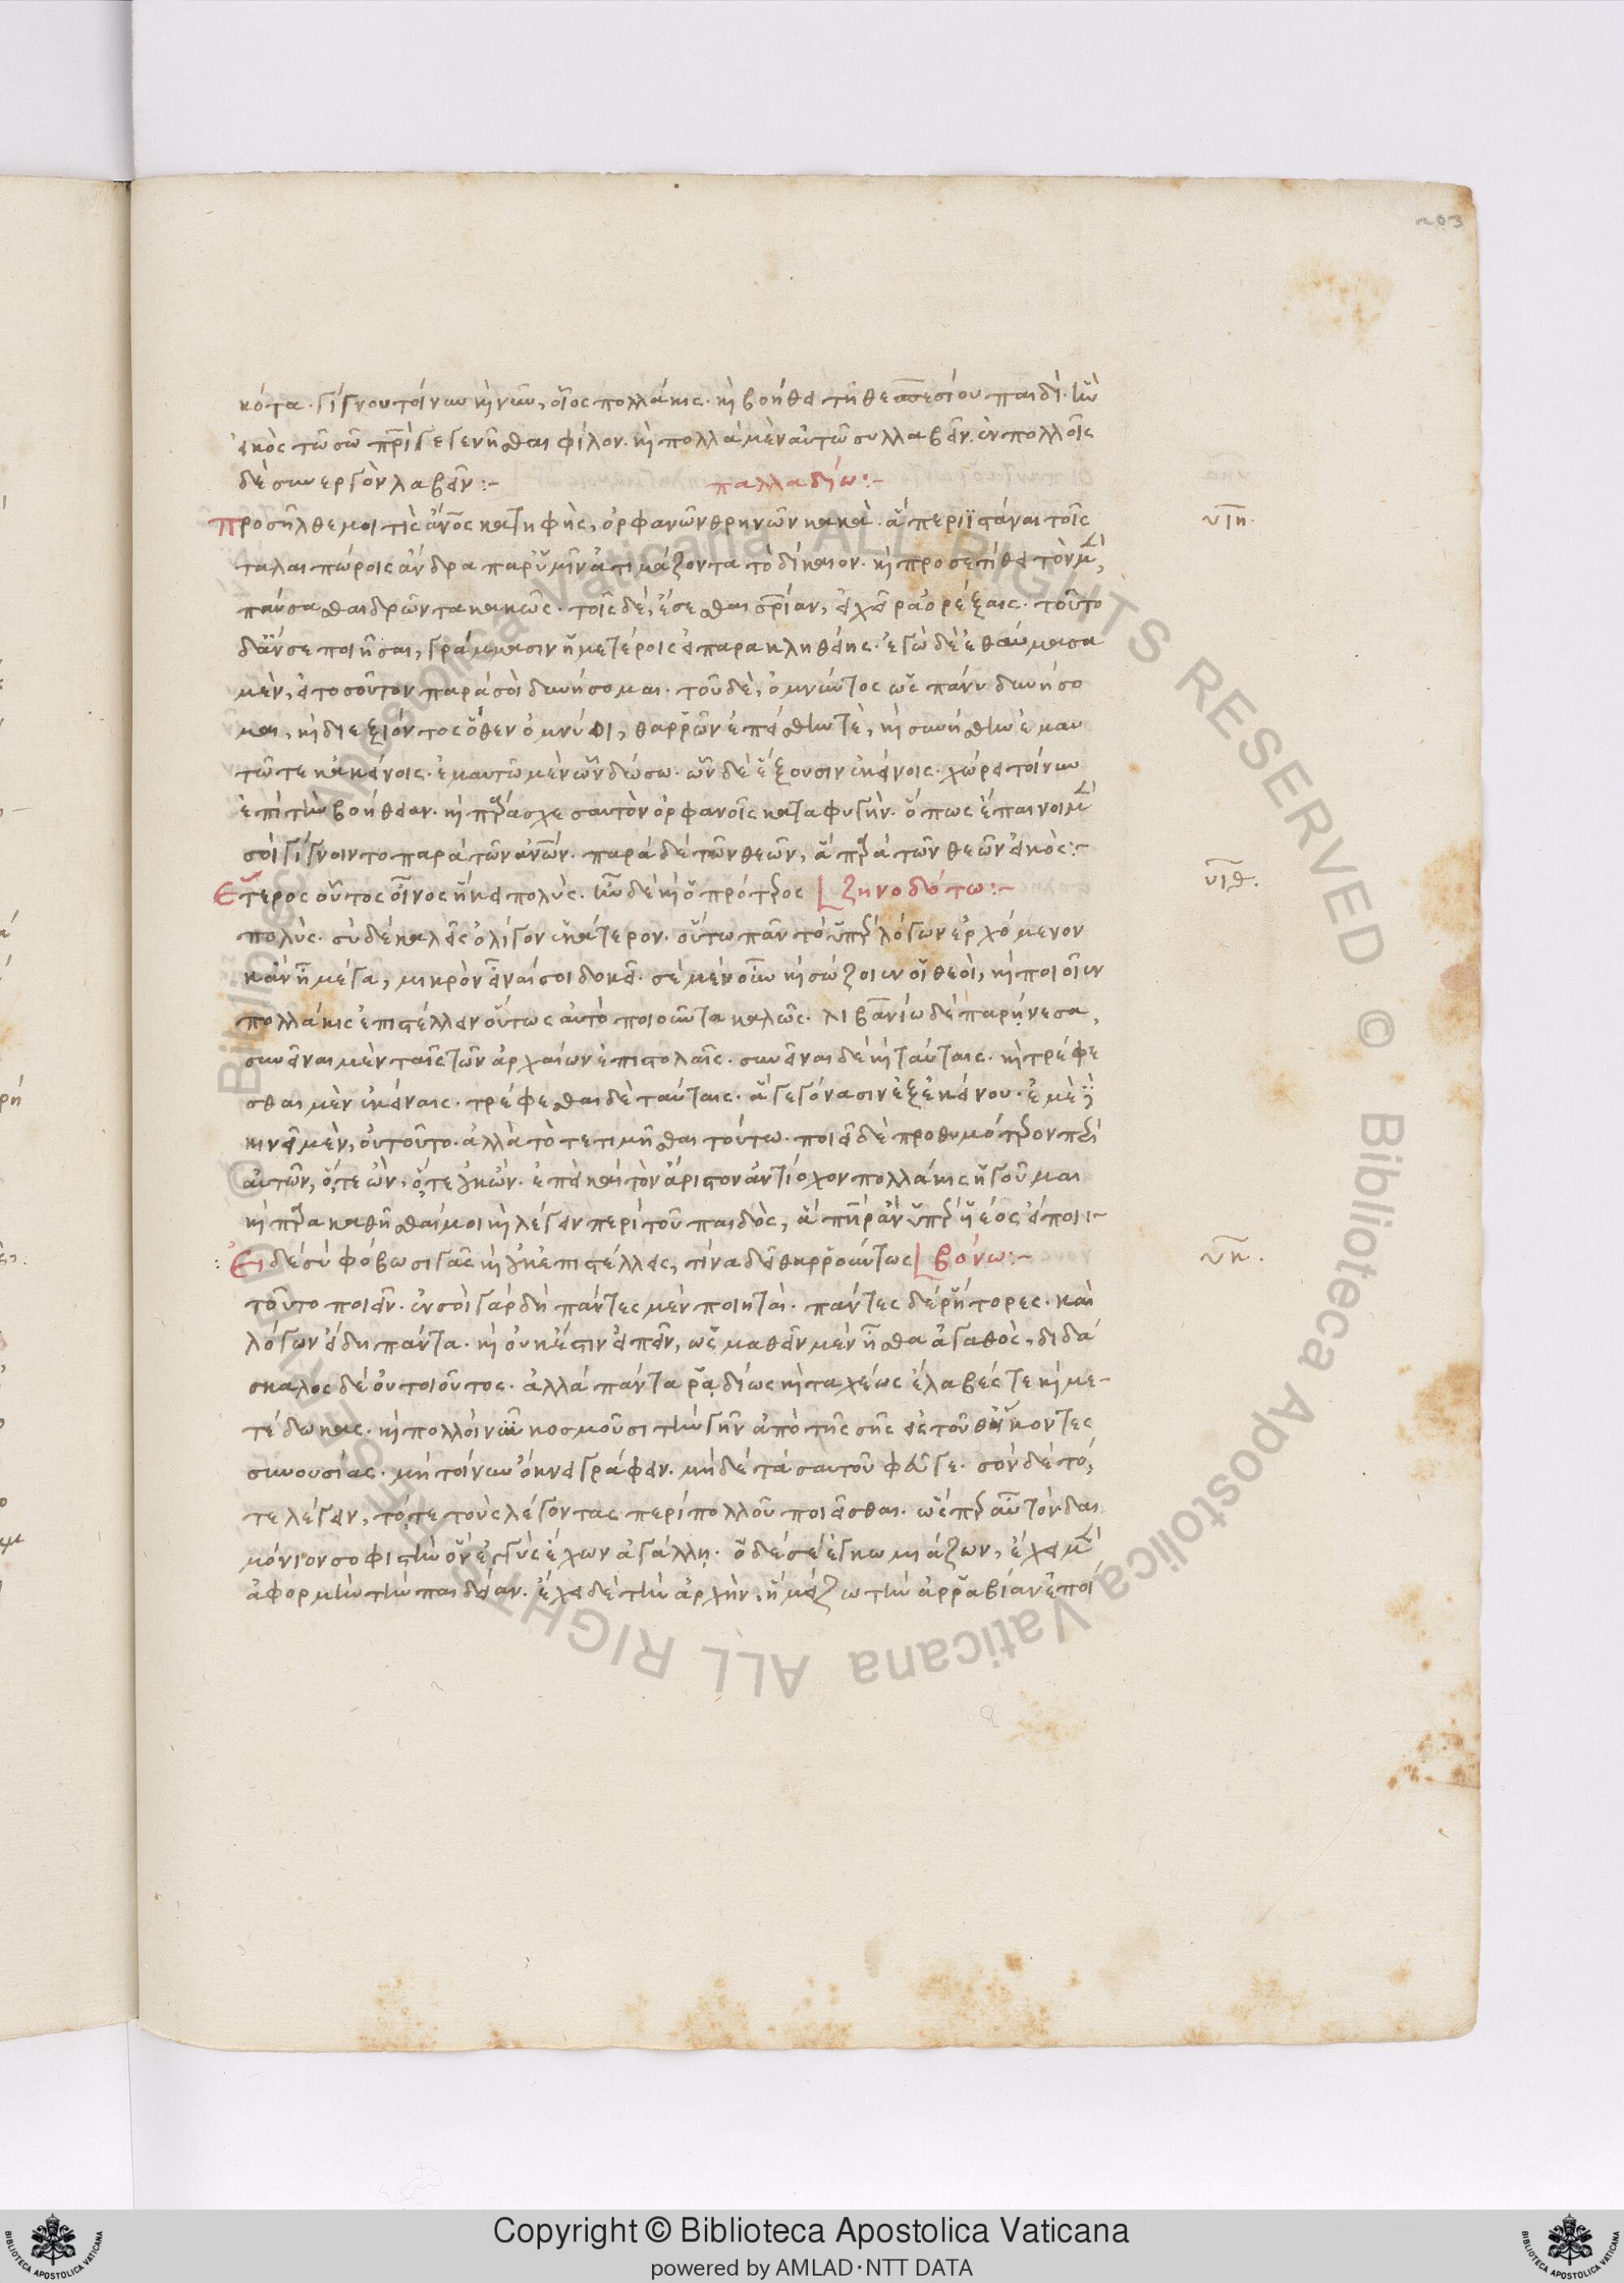 203
κότα. γίγνου τοίνυν κὶ νῦν, οἷος πολλάκις. κὶ βοήθει τῆ θεσπεσίου παιδὶ. ἣν
εἰκὸς τῶ σῶ πρὶ γεγενῆσθαι φίλον. κὶ πολλὰ μὲν αὐτῶ συλλαβεῖν. ἐν πολλοῖς
δὲ συνεργὸν λαβεῖν :-
παλλαδίω :-
Προσῆλθε μοι τὶς ἀνος κατηφὴς, ὀρφανῶν θρηνῶν κακὰ. ἃ περιϊστάναι τοῖς
υιη.
ταλαιπώροις ἄνδρα παρ' ὑμῖν ἀτιμάζοντα τὸ δίκαιον. κὶ προσετίθει τὸν μ,
παύσασθαι δρῶντα κακῶς. τοῖς δὲ, ἔσεσθαι σριαν, εἰ χεῖρα ὀρέξαις. τοῦτο
δ' ἄν σε ποιῆσαι, γράμμασιν ἡμετέροις εἰ παρακληθείης. ἐγὼ δὲ ἐθαύμασα
μὲν, εἰ τοσοῦτον παρὰ σοὶ δυνήσομαι. τοῦ δὲ, ὀμνύντος ὡς πάνυ δυνήσο
μαι, κὶ διεξιόντος ὅθεν ὀμνύει, θαρρῶν ἐπείσθην τὲ, κὶ συνήσθην ἐμαυ
τῶ τε κἀκείνοις. ἐμαυτῶ μὲν ὧν δώσω. ὧν δὲ ἕξουσιν ἐκείνοις. χώρει τοίνυν
ἐπὶ τὴν βοήθειαν. κὶ πράσχε σαυτὸν ὀρφανοῖς καταφυγὴν. ὅπως ἔπαινοι μ
σοὶ γίγνοιντο παρὰ τῶν ἀνων. παρὰ δὲ τῶν θεῶν, ἃ πρὰ τῶν θεῶν εἰκὸς :-
Ετερος οὗτος οἶνος ἥκει πολὺς. ἦν δὲ κὶ ὁ πρότρος ζηνοδότω :-
υιθ.
πολὺς. σὺ δὲ καλεῖς ὀλίγον ἑκάτερον. οὕτω πᾶν τὸ ὑπὲρ λόγων ἐρχόμενον
κἂν ᾖ μέγα, μικρὸν εἶναί σοι δοκεῖ. σὲ μὲν οὖν κὶ σώζοιεν οἱ θεοὶ, κὶ ποιοῖεν
πολλάκις ἐπιστέλλειν οὕτως αὐτὸ ποιοῦντα καλῶς. λιβανίω δὲ παρήνεσα,
συνεῖναι μὲν ταῖς τῶν ἀρχαίων ἐπιστολαῖς. συνεῖναι δὲ κὶ ταύταις. κὶ τρέφε
σθαι μὲν ἐκείναις. τρέφεσθαι δὲ ταύταις. ἃ γεγόνασιν ἐξ ἐκείνου. ἐμὲ
κινεῖ μὲν, οὐ τοῦτο. ἀλλὰ τὸ τετιμῆσθαι τούτω. ποιεῖ δὲ προθυμότρον πρὶ
αὐτῶν, ὅ,τε ὢν, ὅ,τε οὐκ ὢν. ἐπεὶ καὶ τὸν ἄριστον ἀντίοχον πολλάκις ἡγοῦμαι
κὶ πρακαθῆσθαί μοι κὶ λέγειν περὶ τοῦ παιδὸς, ἃ πῆρ ἂν ὑπὲρ ὑέος εἴποι :-
Ει δὲ σὺ φόβω σιγᾶς κὶ οὐκ ἐπιστέλλεις, τίνα δεῖ θαρροῦντως βόνω :-
υκ.
τοῦτο ποιεῖν. ἐν σοὶ γὰρ δὴ πάντες μὲν ποιηταὶ. πάντες δὲ ῥήτορες. καὶ
λόγων εἴδη πάντα. κὶ οὐκ ἔστιν εἰπεῖν, ὡς μαθεῖν μὲν ἦσθα ἀγαθὸς, διδά
σκαλος δὲ οὐ τοιοῦτος. ἀλλὰ πάντα ῥᾳδίως κὶ ταχέως ἔλαβές τε κὶ με-
τέδωκας. κὶ πολλοὶ νῦν κοσμοῦσι τὴν γῆν ἀπὸ τῆς σῆς εἰς τοῦθ' ἥκοντες
συνουσίας. μὴ τοίνυν ὄκνει γράφειν. μηδὲ τὰ σαυτοῦ φεῦγε. σὸν δὲ τό,
τε λέγειν, τό,τε τοὺς λέγοντας περὶ πολλοῦ ποιεῖσθαι. ὡς πρ αὐτὸν δαι
μόνιον σοφιστὴν ὃν ἐγγὺς ἔχων ἀγάλλη. ὃ δέ σέ ἐγκωμιάζων, ἔχει μ
ἀφορμὴν τὴν παιδείαν. ἔχει δὲ τὴν ἀρχὴν, ἣ μείζω τὴν ἀρραβίαν ἐποί
Copyright © Biblioteca Apostolica Vaticana
powered by AMLAD·NTT DATA